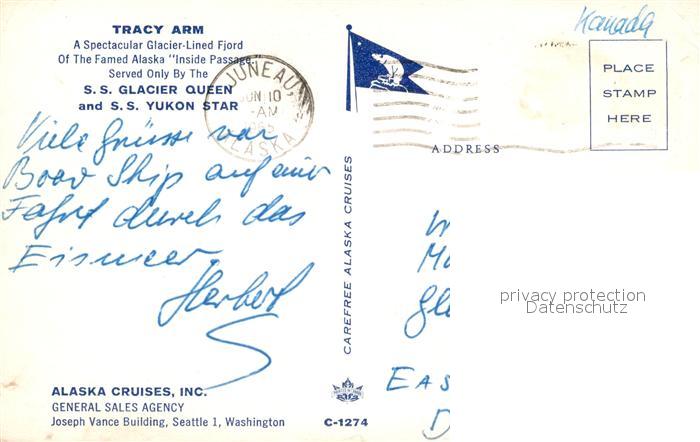 Kanada
TRACY ARM
A Spectacular Glacier-Lined Fjord
Of The Famed Alaska "Inside Passage"
Served Only By The
S.S. GLACIER QUEEN
and S.S. YUKON STAR
JUNEAU,
JUN 10
AM
ALASKA
PLACE
STAMP
HERE
ADDRESS
Viele Grüsse von
Boar Ship auf einer
Fahrt durch das
Eismeer
Herbert
CAREFREE ALASKA CRUISES
privacy protection
Datenschutz
EAS
D
ALASKA CRUISES, INC.
GENERAL SALES AGENCY
Joseph Vance Building, Seattle 1, Washington
C-1274